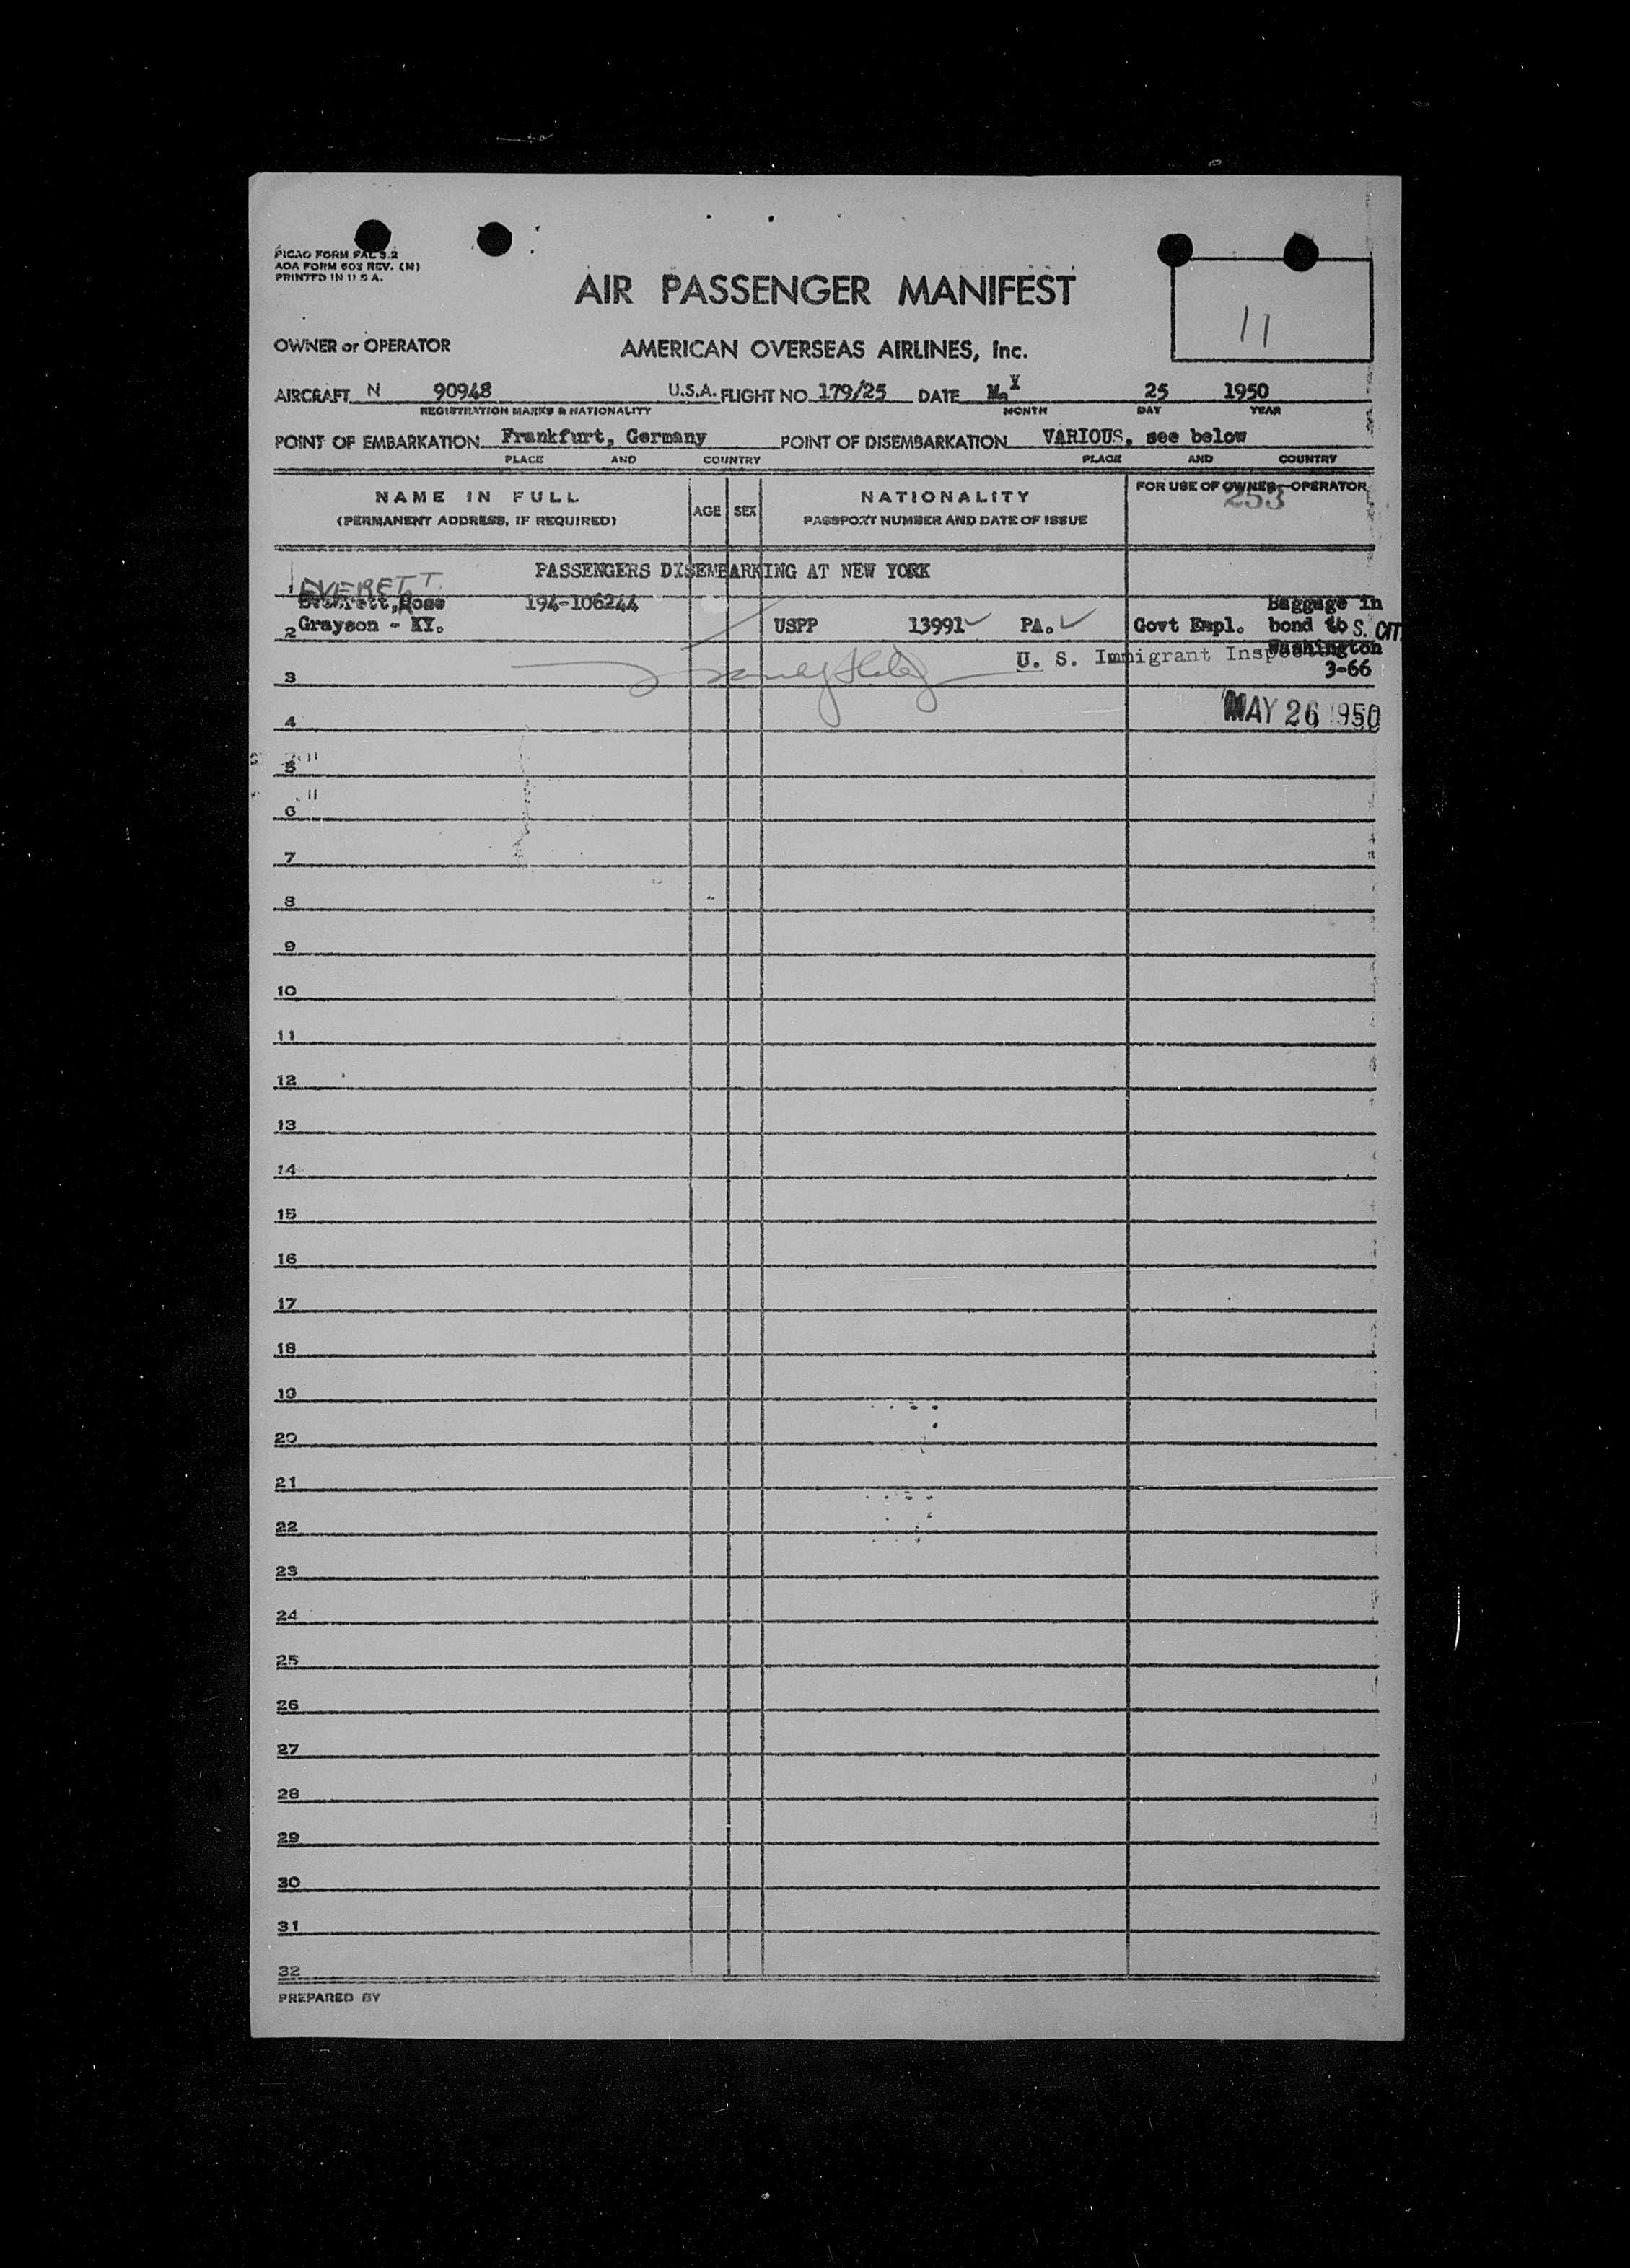 PICAO FORM FAL 3.2
AOA FORM 603 REV. (M)
PRINTED IN U S A.
AIR PASSENGER MANIFEST
11
OWNER or OPERATOR AMERICAN OVERSEAS AIRLINES, Inc.
AIRCRAFT N 90948 U.S.A. FLIGHT NO. 179/25 DATE May 25 1950
REGISTRATION MARKS & NATIONALITY MONTH DAY YEAR
POINT OF EMBARKATION Frankfurt, Germany POINT OF DISEMBARKATION VARIOUS, see below
PLACE AND COUNTRY PLACE AND COUNTRY
NAME IN FULL AGE SEX NATIONALITY FOR USE OF OWNER-OPERATOR
(PERMANENT ADDRESS, IF REQUIRED) PASSPORT NUMBER AND DATE OF ISSUE 253
PASSENGERS DISEMBARKING AT NEW YORK
1 EVERETT
Rose 194-106244 Baggage in
2 Grayson - KY. USPP 13991 PA. Govt Empl. bond to S. CIT.
Washington
U. S. Immigrant
3 3-66
4 MAY 26 1950
5
6
7
8
9
10
11
12
13
14
15
16
17
18
19
20
21
22
23
24
25
26
27
28
29
30
31
32
PREPARED BY